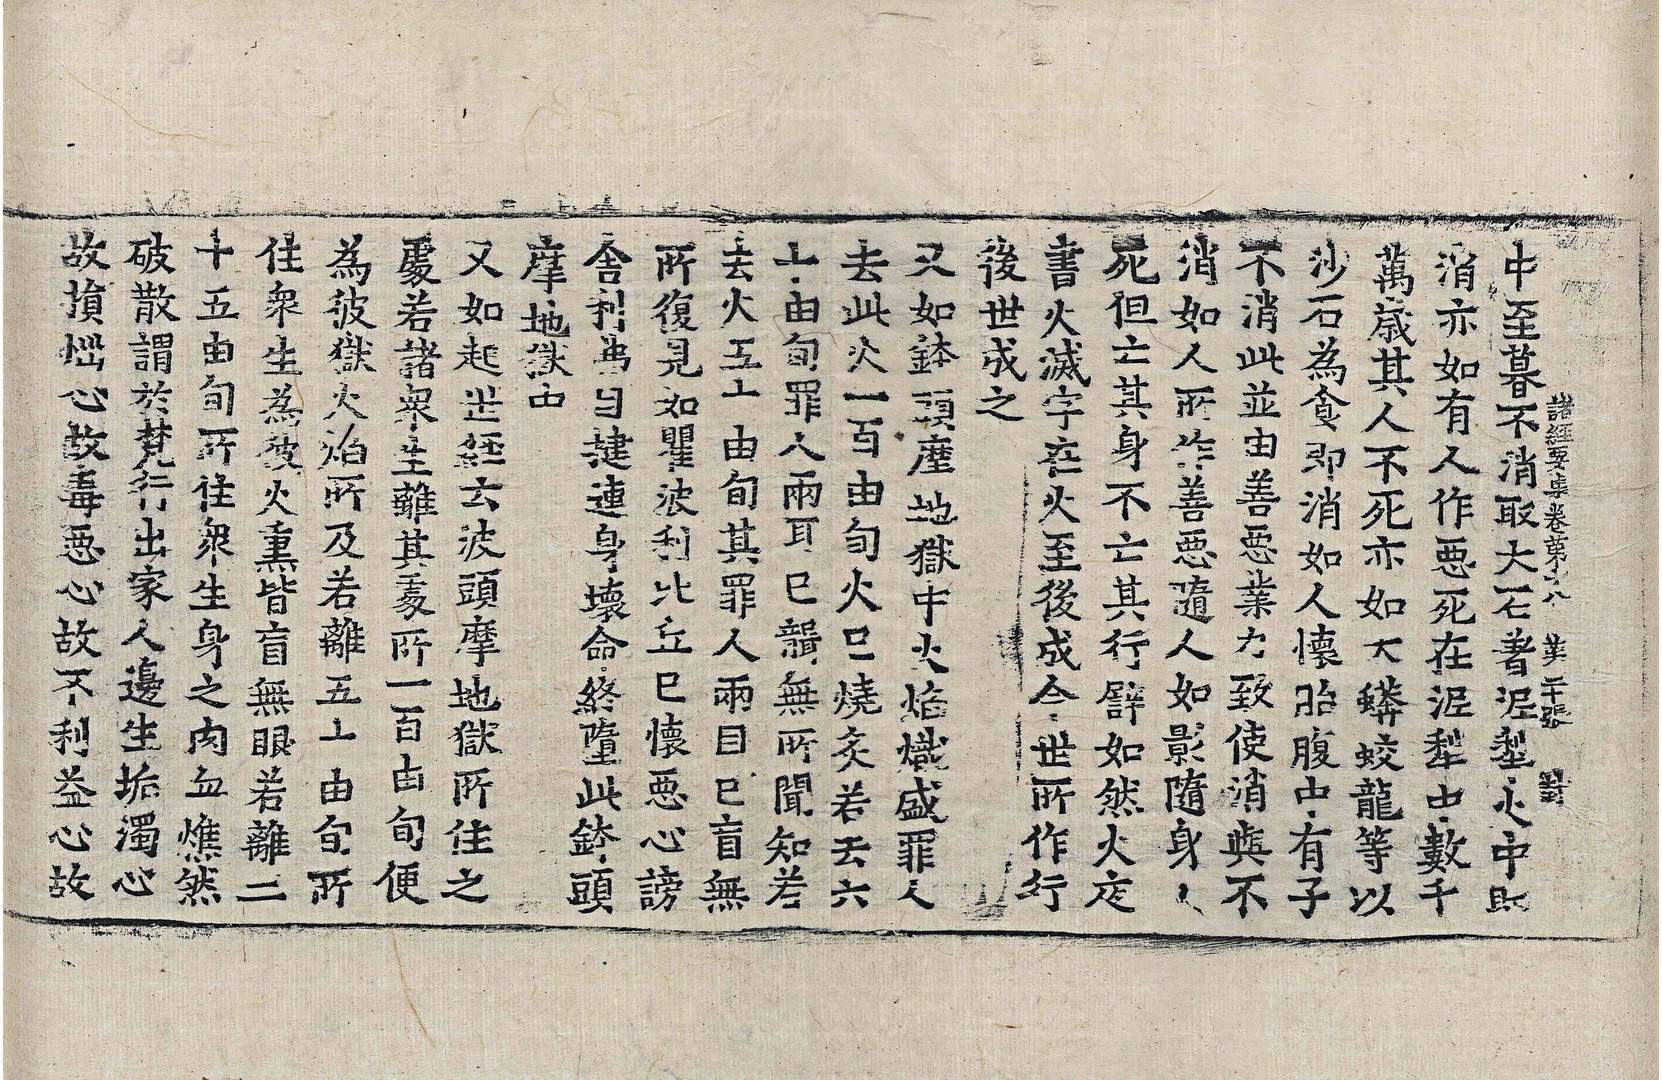 諸經要集卷第十八　第二十張　對
中至暮不消取大石著泥犁火中即
消亦如有人作惡死在泥犁中數千
萬歲其人不死亦如大蟒蛟龍等以
沙石為食即消如人懷胎腹中有子
不消此並由善惡業力致使消與不
消如人所作善惡隨人如影隨身人
死但亡其身不亡其行譬如然火夜
書火滅字在火至後成今世所作行
後世成之
又如鉢頭摩地獄中火焰熾盛罪人
去此火一百由旬火已燒炙若去六
十由旬罪人兩耳已聾無所聞知若
去火五十由旬其罪人兩目已盲無
所復見如瞿波利比丘已懷惡心謗
舍利弗目揵連身壞命終墮此鉢頭
摩地獄中
又如起世經云波頭摩地獄所住之
處若諸衆生離其處所一百由旬便
為彼獄火焰所及若離五十由旬所
住衆生為彼火熏皆盲無眼若離二
十五由旬所住衆生身之肉血燋然
破散謂於梵行出家人邊生垢濁心
故損惱心故毒惡心故不利益心故